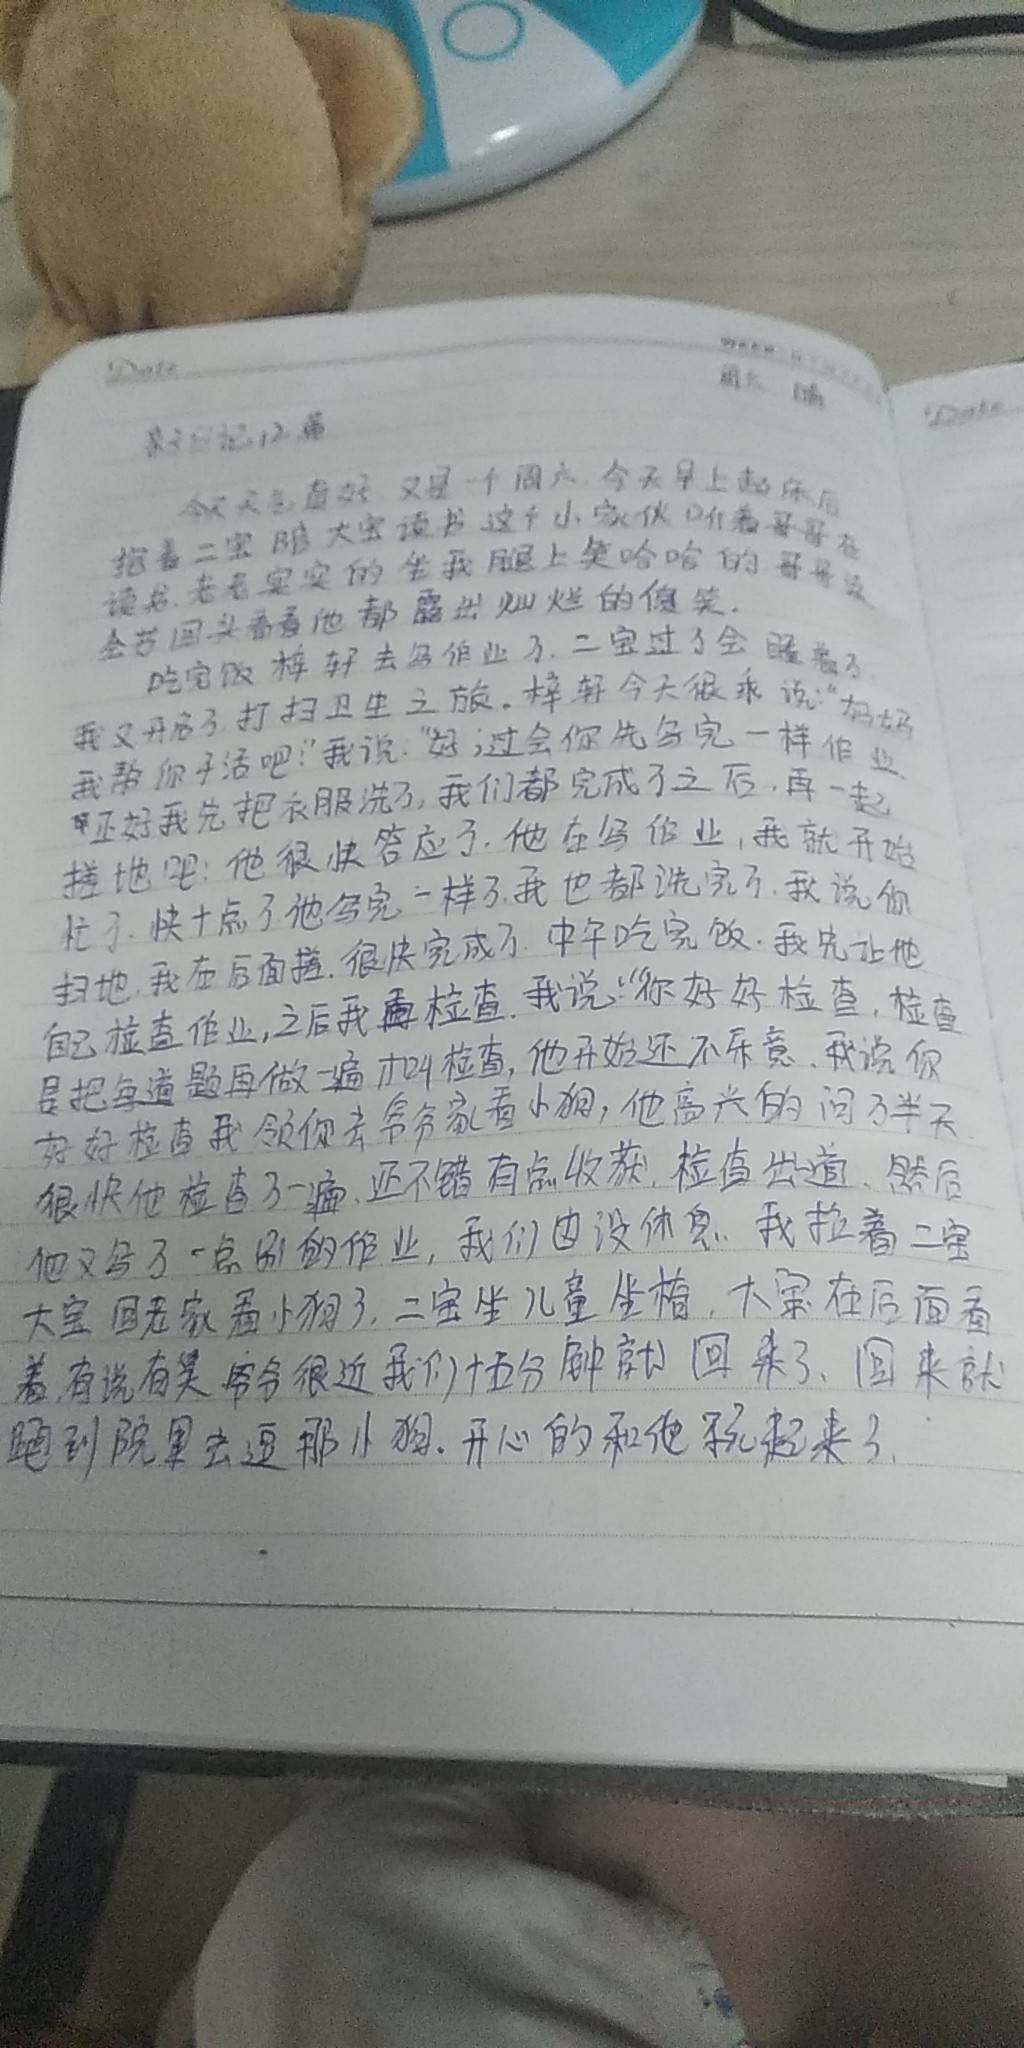 Date
周六 晴
亲子日记12篇
今天天气真好.又是一个周六.今天早上起床后
抱着二宝陪大宝读书这个小家伙听着哥哥在
读书.老老实实的坐我腿上笑哈哈的哥哥
会苦回头看看他都露出灿烂的傻笑.
吃完饭梓轩去写作业了.二宝过了会睡着了.
我又开启了打扫卫生之旅。梓轩今天很乖说:“妈妈
我帮你干活吧!”我说.“好;过会你先写完一样作业.
正好我先把衣服洗了,我们都完成了之后.再一起
搓地吧:他很快答应了.他在写作业,我就开始
忙了.快十点了他写完一样了.我也都洗完了.我说你
扫地.我在后面搓.很快完成了.中午吃完饭.我先让他
自己检查作业,之后我再检查.我说:“你好好检查,检查
是把每道题再做一遍才叫检查,他开始还不乐意.我说你
好好检查我领你去爷爷家看小狗,他高兴的问了半天.
很快他检查了一遍.还不错有点收获.检查出道.然后
他又写了一点别的作业,我们也没休息.我拉着二宝
大宝回老家看小狗了.二宝坐儿童坐椅.大宝在后面看
着.有说有笑爷爷很近我们十五分钟就回来了、回来就
跑到院里去逗那小狗.开心的和他玩起来了.
Date